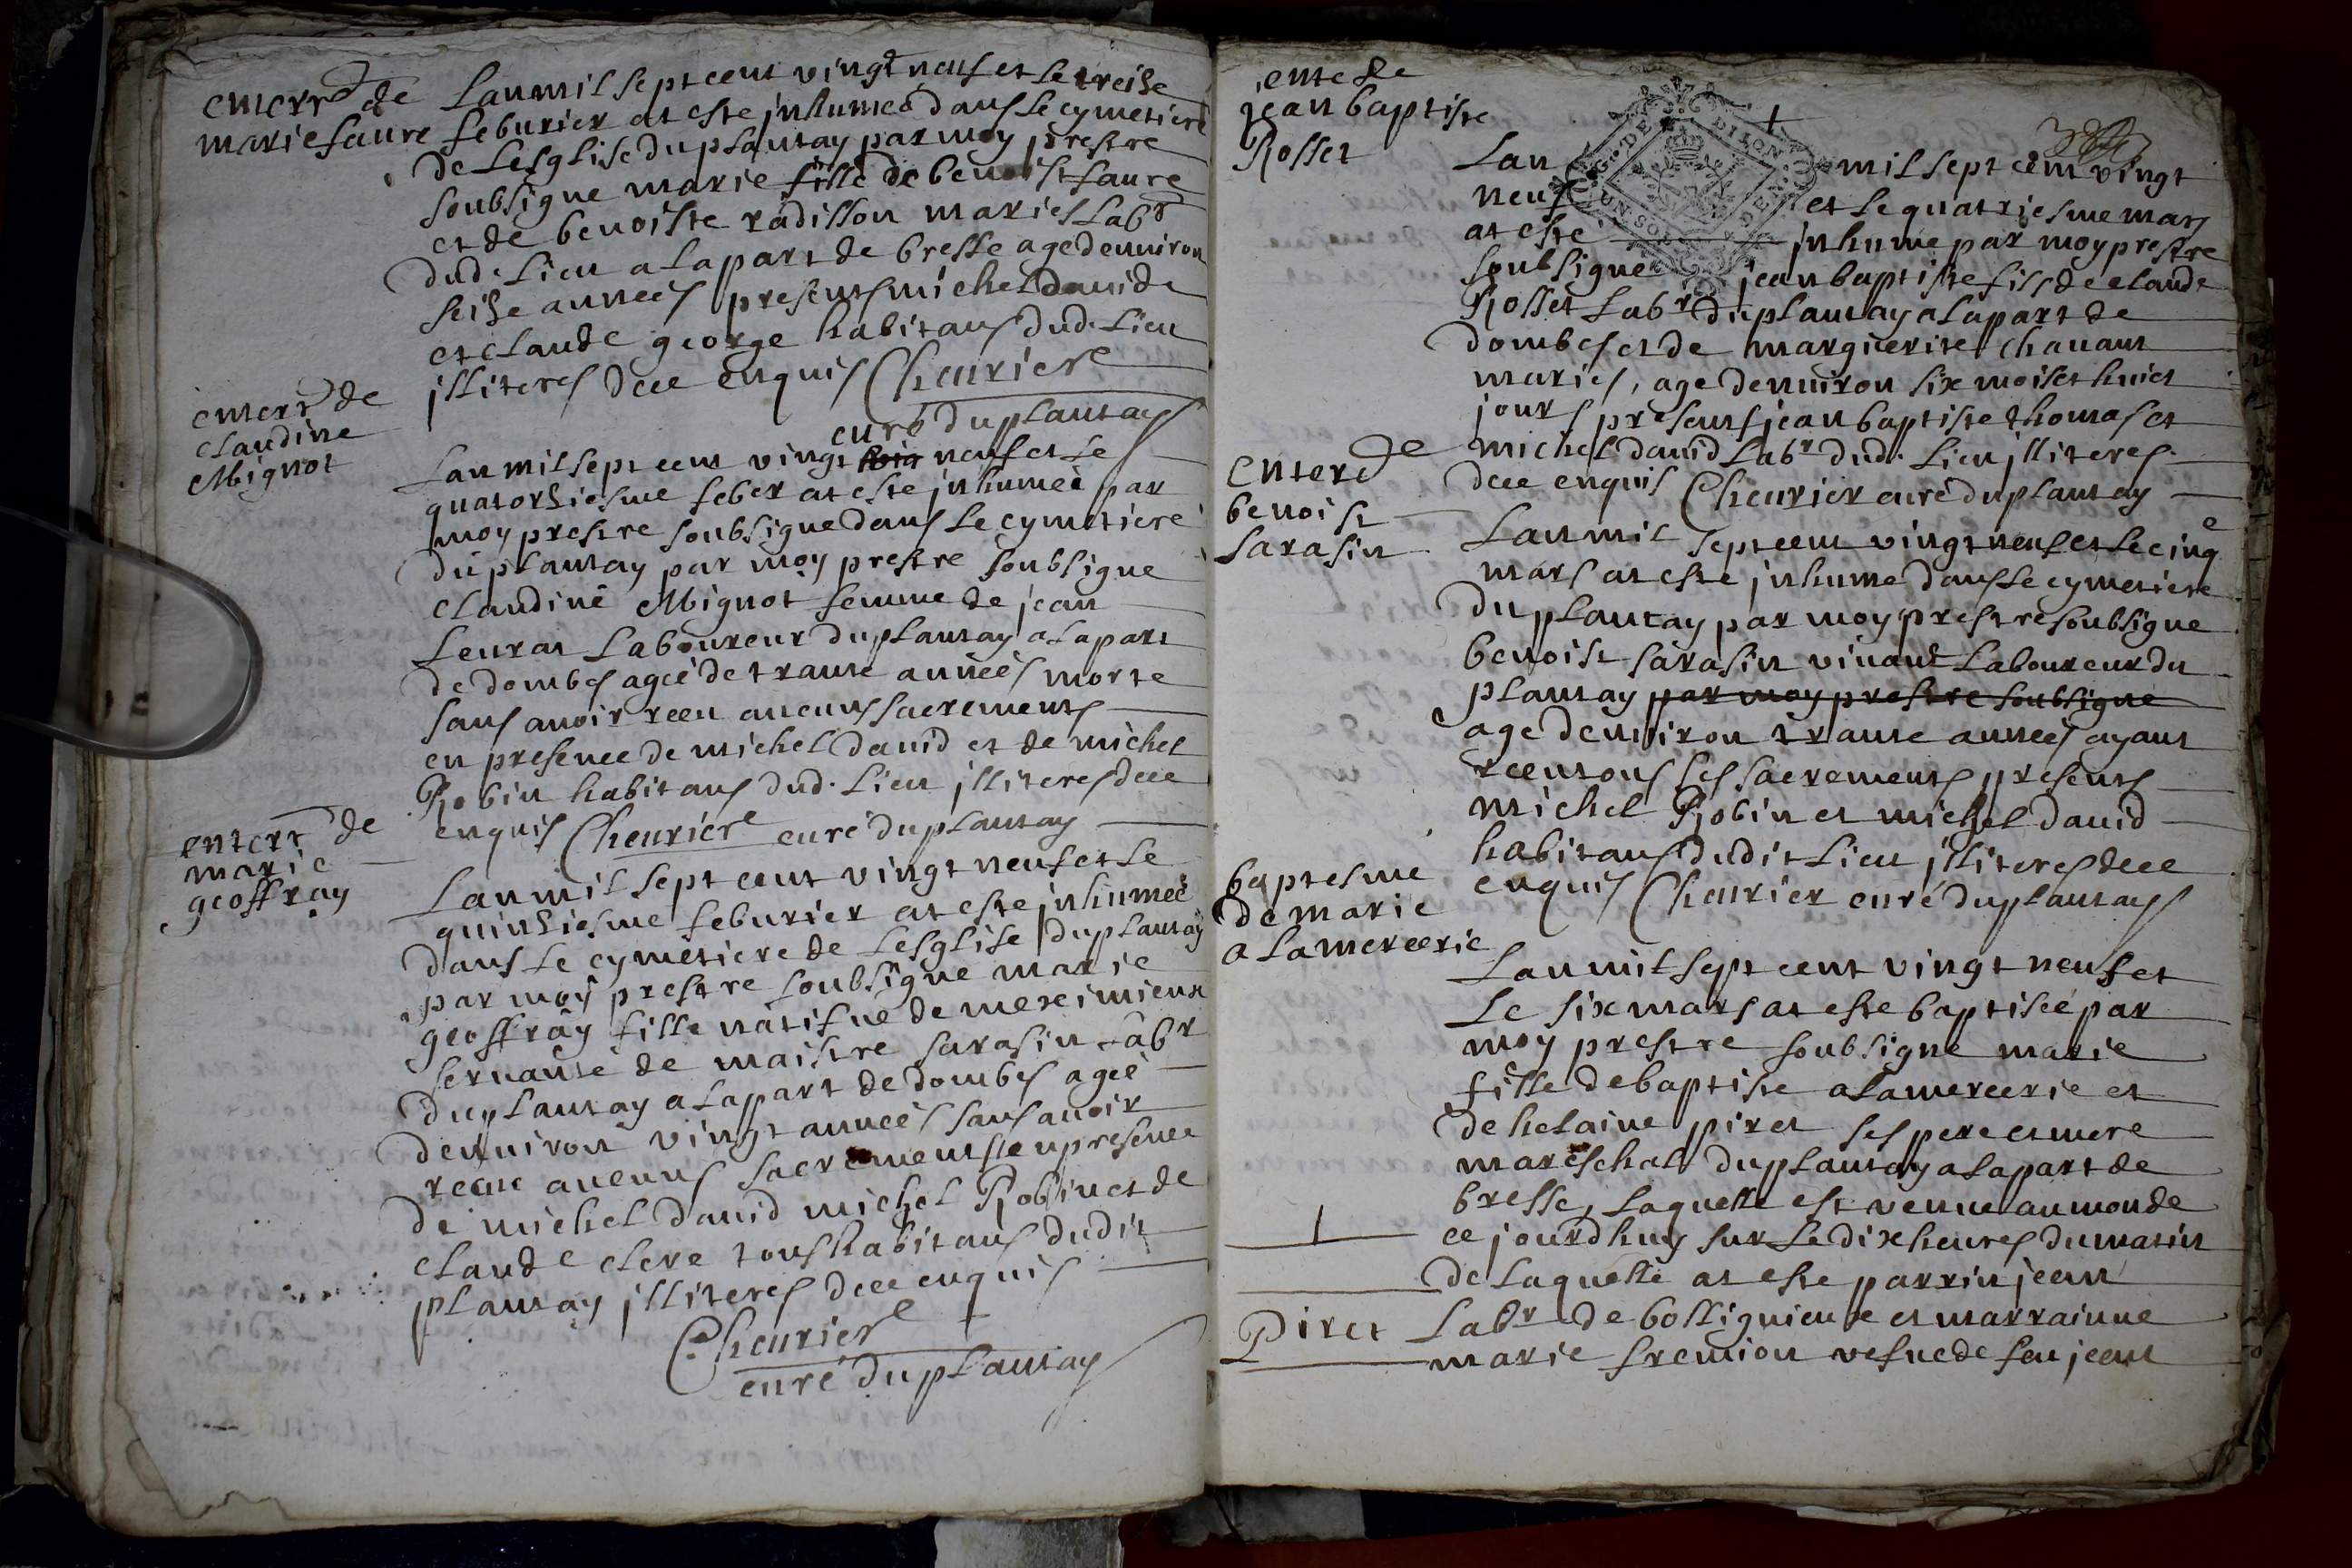 enterrt de
marie faure
Lan mil sept cent vingt neuf et le treise
feburier at este jnhumeé dans le cymetiere
de Lesglise du plantay par moy prestre
soubsigne marie fille de benoist faure
et de benoiste radillon maries Labr
dud. Lieu a la part de bresse age denuiron
seise anneés presens michel dauid
et claude george habitans dud. Lieu
jlliteres dece enquis Cheuriere
curé du plantay
enterrt de
claudine
Mignot
Lan mil sept cent vingt neuf et Le
quatorsiesme feber at este jnhumeé par
moy prestre soubsigne dans Le cymetiere
du plantay par moy prestre soubsigne
claudine Mignot femme de jean
Leurat Laboureur du plantay a la part
de dombes ageé de trante anneés morte
sans auoir receu aucuns sacrements
en presence de michel dauid et de michel
Robin habitans dud. Lieu jlliteres dece
enquis Cheuriere curé du plantay
enterrt de
marie
geoffray
Lan mil sept cent vingt neuf et Le
quinsiesme feburier at este jnhumeé
dans Le cymetiere de Lesglise du plantay
par moy prestre soubsigne marie
geoffray fille natifue de meximieux
seruante de maistre sarasin Labr
du plantay a la part de dombes ageé
denuiron vingt anneés sans auoir
receue aucuns sacrements en presence
de michel dauid michel Robin et de
claude clere tous habitans dudit
plantay jlliteres dece enquis
Cheuriere
curé du plantay
ente de
jean baptiste
Rosset
Lan mil sept cent vingt
neuf et Le quatriesme mars
at este jnhume par moy prestre
soubsigne jean baptiste fils de claude
Rosset Labr du plantay a la part de
dombes et de marguerite chanant
maries, age denuiron six mois et huict
jours presens jean baptiste thomas et
michel dauid Labr dud. Lieu jlliteres
dece enquis Cheurier curé du plantay
Entere de
benoist
sarasin
Lan mil sept cent vingt neuf et Le cinqe
mars at este jnhume dans Le cymetiere
du plantay par moy prestre soubsigne
benoist sarasin viuant Laboureur du
plantay par moy prestre soubsigne
age denuiron trante anneés ayant
receu tous ses sacrements presents
michel Robin et michel dauid
habitans dudit Lieu jlliteres dece
enquis Cheurier curé du plantay
baptesme
de marie
a Lamercerie
Lan mil sept cent vingt neuf et
Le six mars at este baptiseé par
moy prestre soubsigne marie
fille de baptiste a Lamercerie et
de helaine piret ses pere et mere
mareschal du plantay a la part de
bresse, Laquelle est venue au monde
ce jourdhuy sur Le dix heures du matin
de Laquelle at este parrin jean
Piret Labr de bollignieuxe et marrainne
marie fremion vefue de feu jean